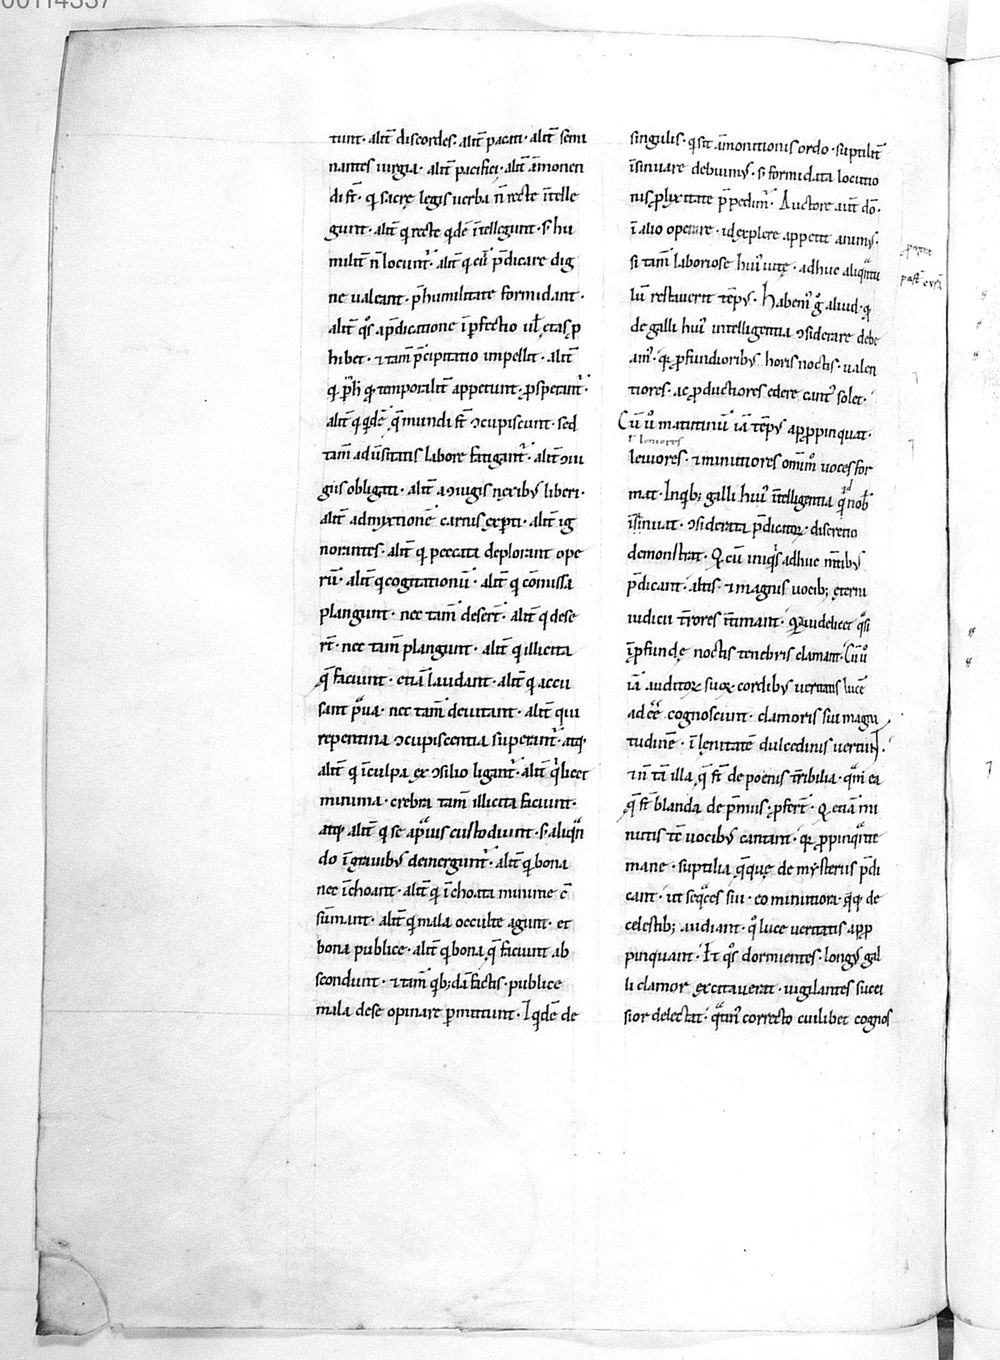 00114337
tunt· alit̄ discordes· alit̄ pacati· alit̄ semi
nantes iurgia· alit̄ pacifici· alit̄ āmonen
di st̄· qͥ sacrę legis uerba n̄ recte ītelle
gunt· alit̄ qͥ recte qͥdē ītellegunt· s; hu
milit̄ n̄ locunt᷑· alit̄ qͥ cū p̄dicare dig
ne ualeant· p̄ humilitate formidant·
alit̄ qͦs a p̄dicatione īꝑfectio uł ętas ꝓ
hibet· ⁊ tam̄ p̄cipitatio impellit· alit̄
qͥ p̄ h̄ qͦ temporalit̄ appetunt· ꝓsperant᷑·
alit̄ qͥ qͥdē q̄ mundi st̄ ↄcupiscunt· sed
tam̄ aduersitatis labore fatigant᷑· alit̄ ↄiu
giis obligati· alit̄ a ↄiugii nexibꝰ liberi·
alit̄ admixtionē carnis exꝑti· alit̄ ig
norantes· alit̄ qͥ peccata deplorant ope
rū· alit̄ qͥ cogitationū· alit̄ qͥ cōmissa
plangunt· nec tam̄ desert̄· alit̄ qͥ dese
rt̄· nec tam̄ plangunt· alit̄ qͥ illicita
q̄ faciunt· etiā laudant· alit̄ qͥ accu
sant praua· nec tam̄ deuitant· alit̄ qui
repentina ↄcupiscentia superant᷑· atqꝫ
alit̄ qͥ ī culpa ex ↄsilio ligant᷑· alit̄ qͥ licet
minima· crebra tam̄ illicita faciunt·
atqꝫ alit̄ qͥ se a paruis custodiunt· s; aliqn̄
do ī grauibꝰ demergunt᷑· alit̄ qͥ bona
nec īchoant· alit̄ qͥ īchoata minime c̄
sūmant· alit̄ qͥ mala occulte agunt· et
bona publice· alit̄ qͥ bona q̄ faciunt ab
scondunt· ⁊ tam̄ qͥb; dā factis· publice
mala de se opinare ꝑmittunt· Sꝫ qͥdē de
singulis· qͥ sit āmonitionis ordo· suptilit̄
īsinuare debuimꝰ· s; formidata locutio
nis ꝓlixitate p̄pedim᷑· Auctore aut̄ do·
ī alio opere· id explere appetit animꝰ·
si tam̄ laboriose huiꝰ uitę· adhuc aliqͣntu
lū restauerit tēpꝰ· Habemꝰ gͦ aliud· qͦ
de galli huiꝰ intelligentia ↄsiderare debe
amꝰ· qꝛ ꝓfundioribꝰ horis noctis· ualen
tiores· ac ꝓductiores edere cantꝰ solet·
Cū uͦ matutinū iā tēpꝰ apꝓpinquat·
ł leniores
leuiores· ⁊ minutiores omīmͦ uoces for
mat· In qͥb; galli huiꝰ ītelligentia qͥd nob̄
īsinuat· ↄsiderata p̄dicatoꝝ· discretio
demonstrat· Qͥ cū iniqͥs adhuc mt̄ibꝰ
p̄dicant· altis· ⁊ magnis uocib; ęterni
iudicii t̄rores ītimant· qꝛ uidelicet qͣsi
ī ꝓfundę noctis tenebris clamant· Cū uͦ
iā auditoꝝ suoꝝ cordibꝰ ueritatis lucē
adeē cognoscunt· clamoris sui magni
tudinē· ī lenitatē dulcedinis uertunt·
⁊ n̄ tā illa q̄ st̄ de poenis t̄ribilia· qͣm ea
q̄ st̄ blanda de p̄miis ꝓfert̄· Qͥ etiā mi
nutis tc̄ uocibꝰ cantant· qꝛ ꝓpinqͣnte
mane· suptilia q̄que de mysteriis p̄di
cant· ut seqͣces sui· eo minutiora qͥqꝫ de
celestib; audiant· qͦ luce ueritatis apꝓ
pinquant· Et qͦs dormientes· longꝰ gal
li clamor excitauerat· uigilantes succi
sior delectat· qͣtinꝰ correcto cuilibet cognos